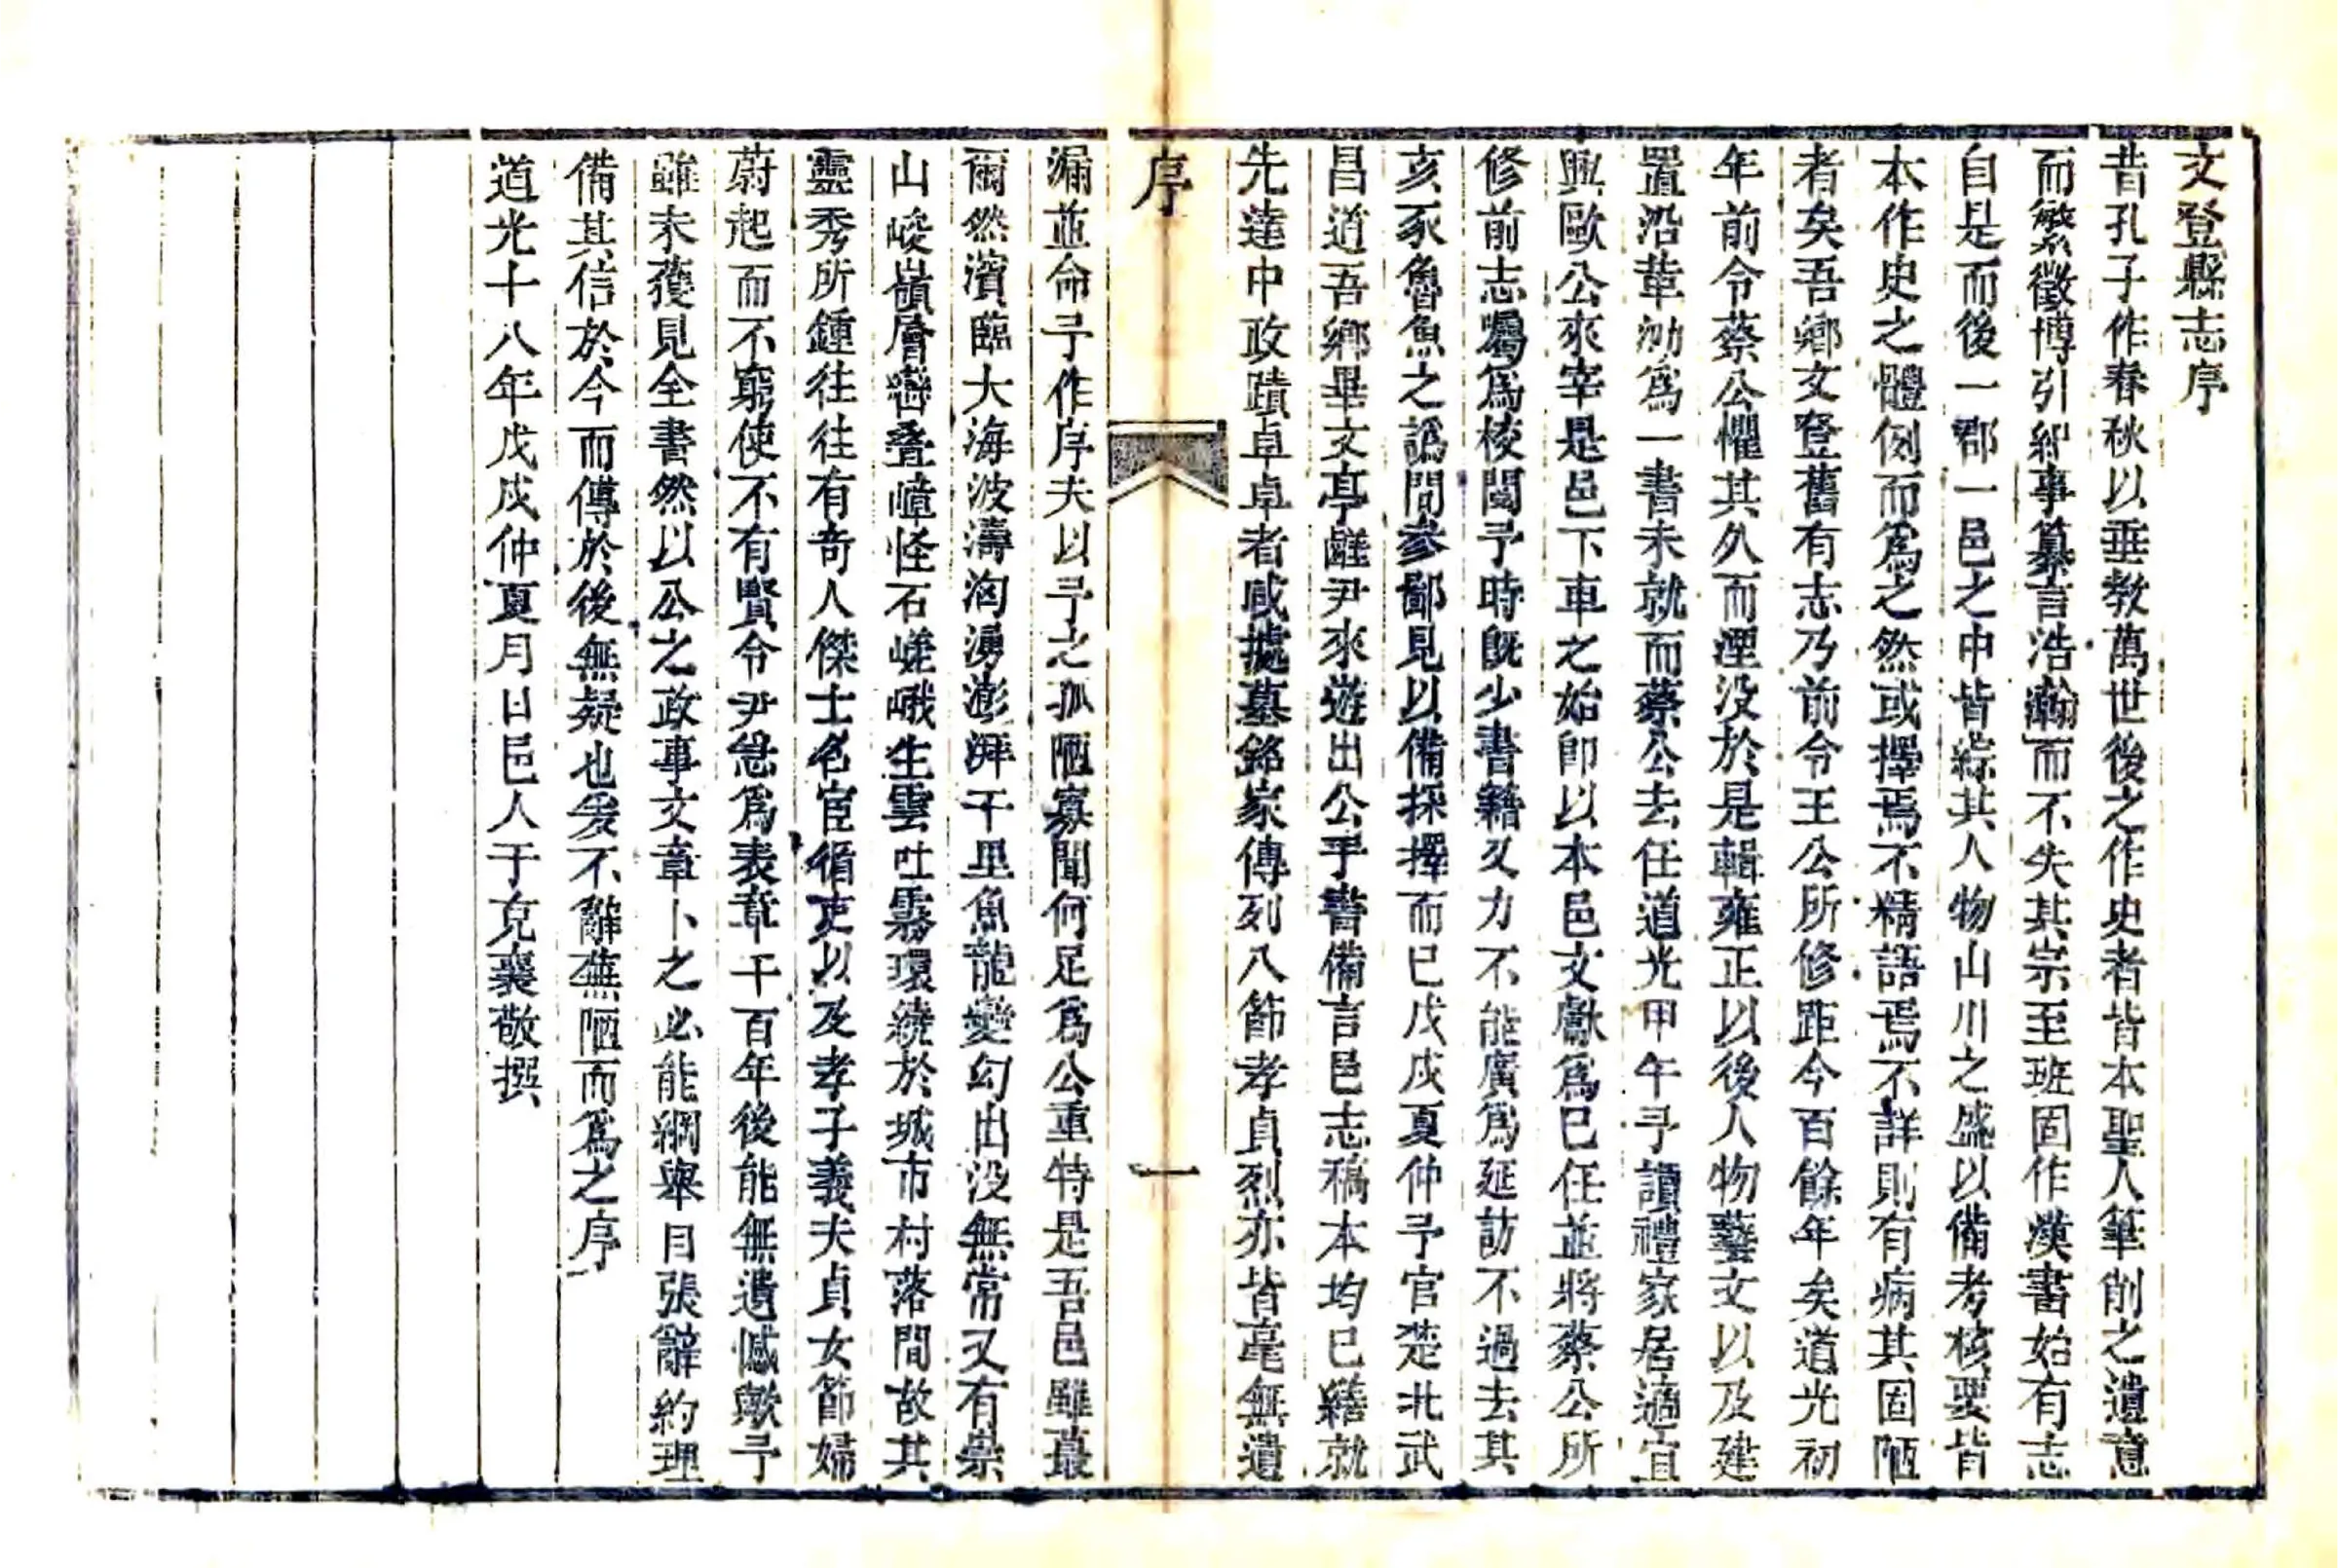 文登縣志序
昔孔子作春秋以垂教萬世後之作史者皆本聖人筆削之遺意
而繁徵博引紀事纂言浩瀚而不失其宗至班固作漢書始有志
自是而後一郡一邑之中皆綜其人物山川之盛以備考核要皆
本作史之體例而爲之然或擇焉不精語焉不詳則有病其固陋
者矣吾鄉文登舊有志乃前令王公所修距今百餘年矣道光初
年前令蔡公懼其久而湮没於是輯雍正以後人物藝文以及建
置沿革勒爲一書未就而蔡公去任道光甲午予讀禮家居適宜
興歐公來宰是邑下車之始卽以本邑文獻爲己任並將蔡公所
修前志囑爲校閱予時既少書籍又力不能廣爲延訪不過去其
亥豕魯魚之譌間參鄙見以備採擇而已戊戌夏仲予官楚北武
昌道吾鄉畢文亭鹺尹來遊出公手書備言邑志稿本均已繕就
先達中政蹟卓卓者咸據墓銘家傳列入節孝貞烈亦皆毫無遺
序
一
漏並命予作序夫以予之孤陋寡聞何足爲公重特是吾邑雖蕞
爾然濱臨大海波濤洶湧澎湃千里魚龍變幻出没無常又有崇
山峻嶺層巒疊嶂怪石嵯峨生雲吐霧環繞於城市村落間故其
靈秀所鍾往往有奇人傑士名宦循吏以及孝子義夫貞女節婦
蔚起而不窮使不有賢令尹急爲表章千百年後能無遺憾歟予
雖未獲見全書然以公之政事文章卜之必能綱舉目張辭約理
備其信於今而傳於後無疑也爰不辭蕪陋而爲之序
道光十八年戊戌仲夏月日邑人于克襄敬撰